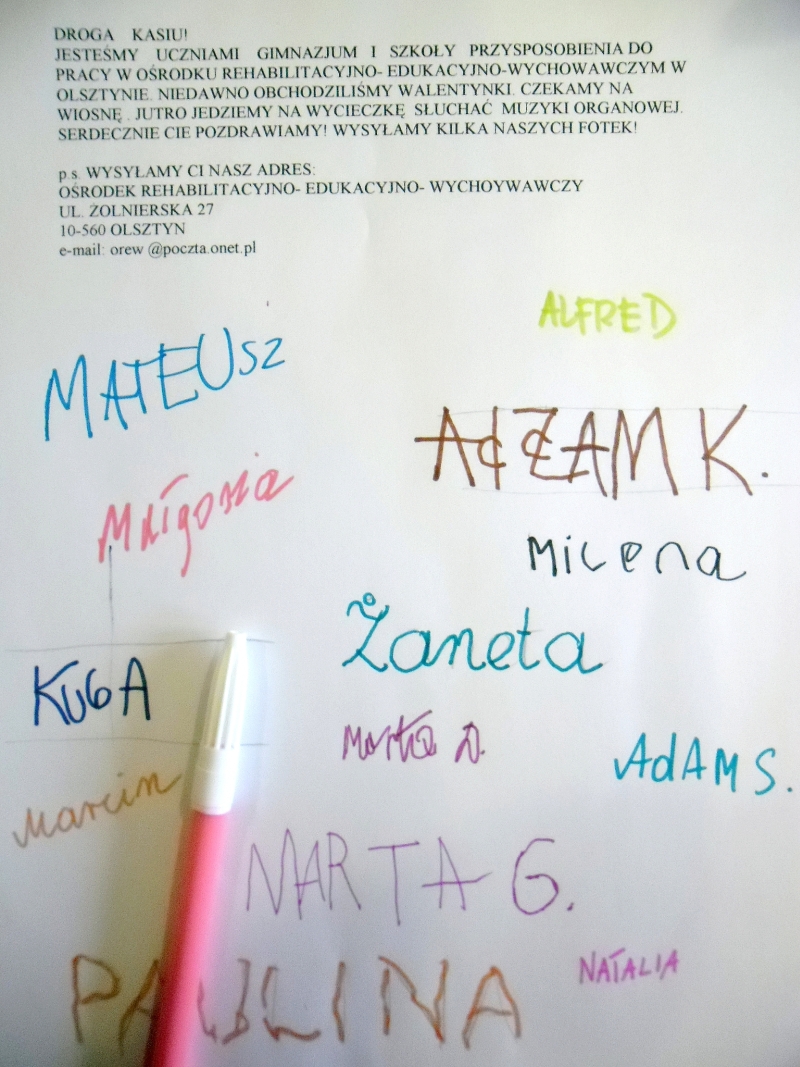 DROGA KASIU!
JESTEŚMY UCZNIAMI GIMNAZJUM I SZKOŁY PRZYSPOSOBIENIA DO
PRACY W OŚRODKU REHABILITACYJNO- EDUKACYJNO-WYCHOWAWCZYM W
OLSZTYNIE. NIEDAWNO OBCHODZILIŚMY WALENTYNKI. CZEKAMY NA
WIOSNĘ . JUTRO JEDZIEMY NA WYCIECZKĘ SŁUCHAĆ MUZYKI ORGANOWEJ.
SERDECZNIE CIE POZDRAWIAMY! WYSYŁAMY KILKA NASZYCH FOTEK!
p.s. WYSYŁAMY CI NASZ ADRES:
OŚRODEK REHABILITACYJNO- EDUKACYJNO- WYCHOYWAWCZY
UL. ŻOLNIERSKA 27
10-560 OLSZTYN
e-mail: orew @poczta.onet.pl
ALFRED
MATEUSZ
K.
Małgosia
Milena
Żaneta
KUbA
Marta D.
AdAM S.
Marcin
MARTA G.
PAULINA
NATALIA